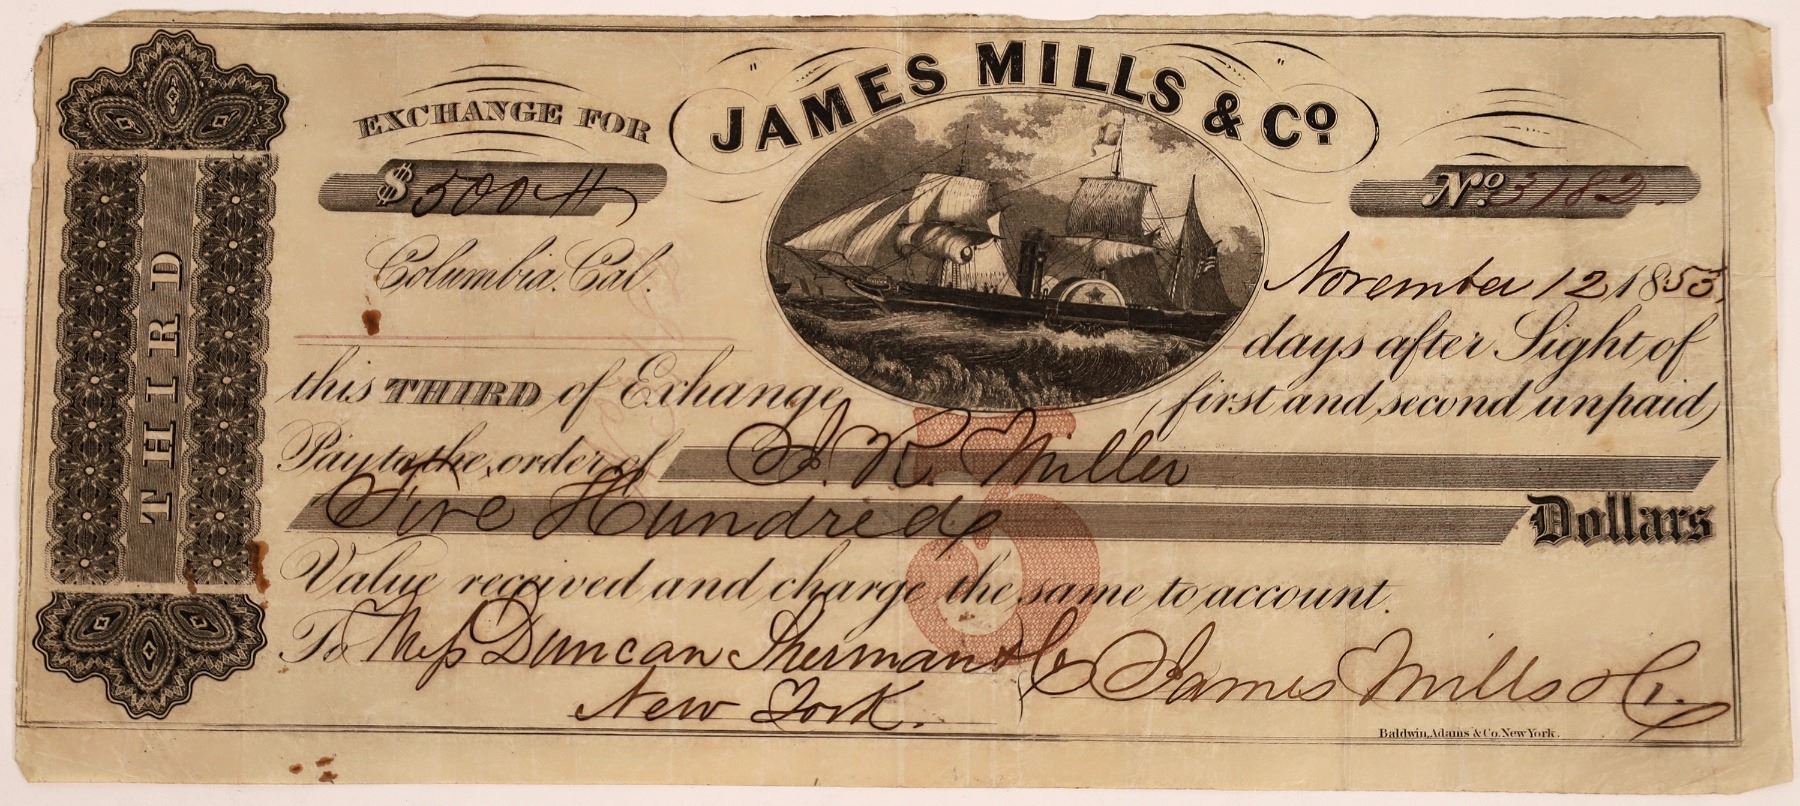 THIRD
EXCHANGE FOR
JAMES MILLS & Co
$ 500
No 3182
Columbia, Cal.
November 12 1853.
days after Sight of
this THIRD of Exhange
(first and second unpaid)
Pay to the order of J. R. Miller
Five Hundred Dollars
Value received and charge the same to account.
To Mess Duncan Sherman & Co
New York.
James Mills & Co.
Baldwin, Adams & Co. New York.
5